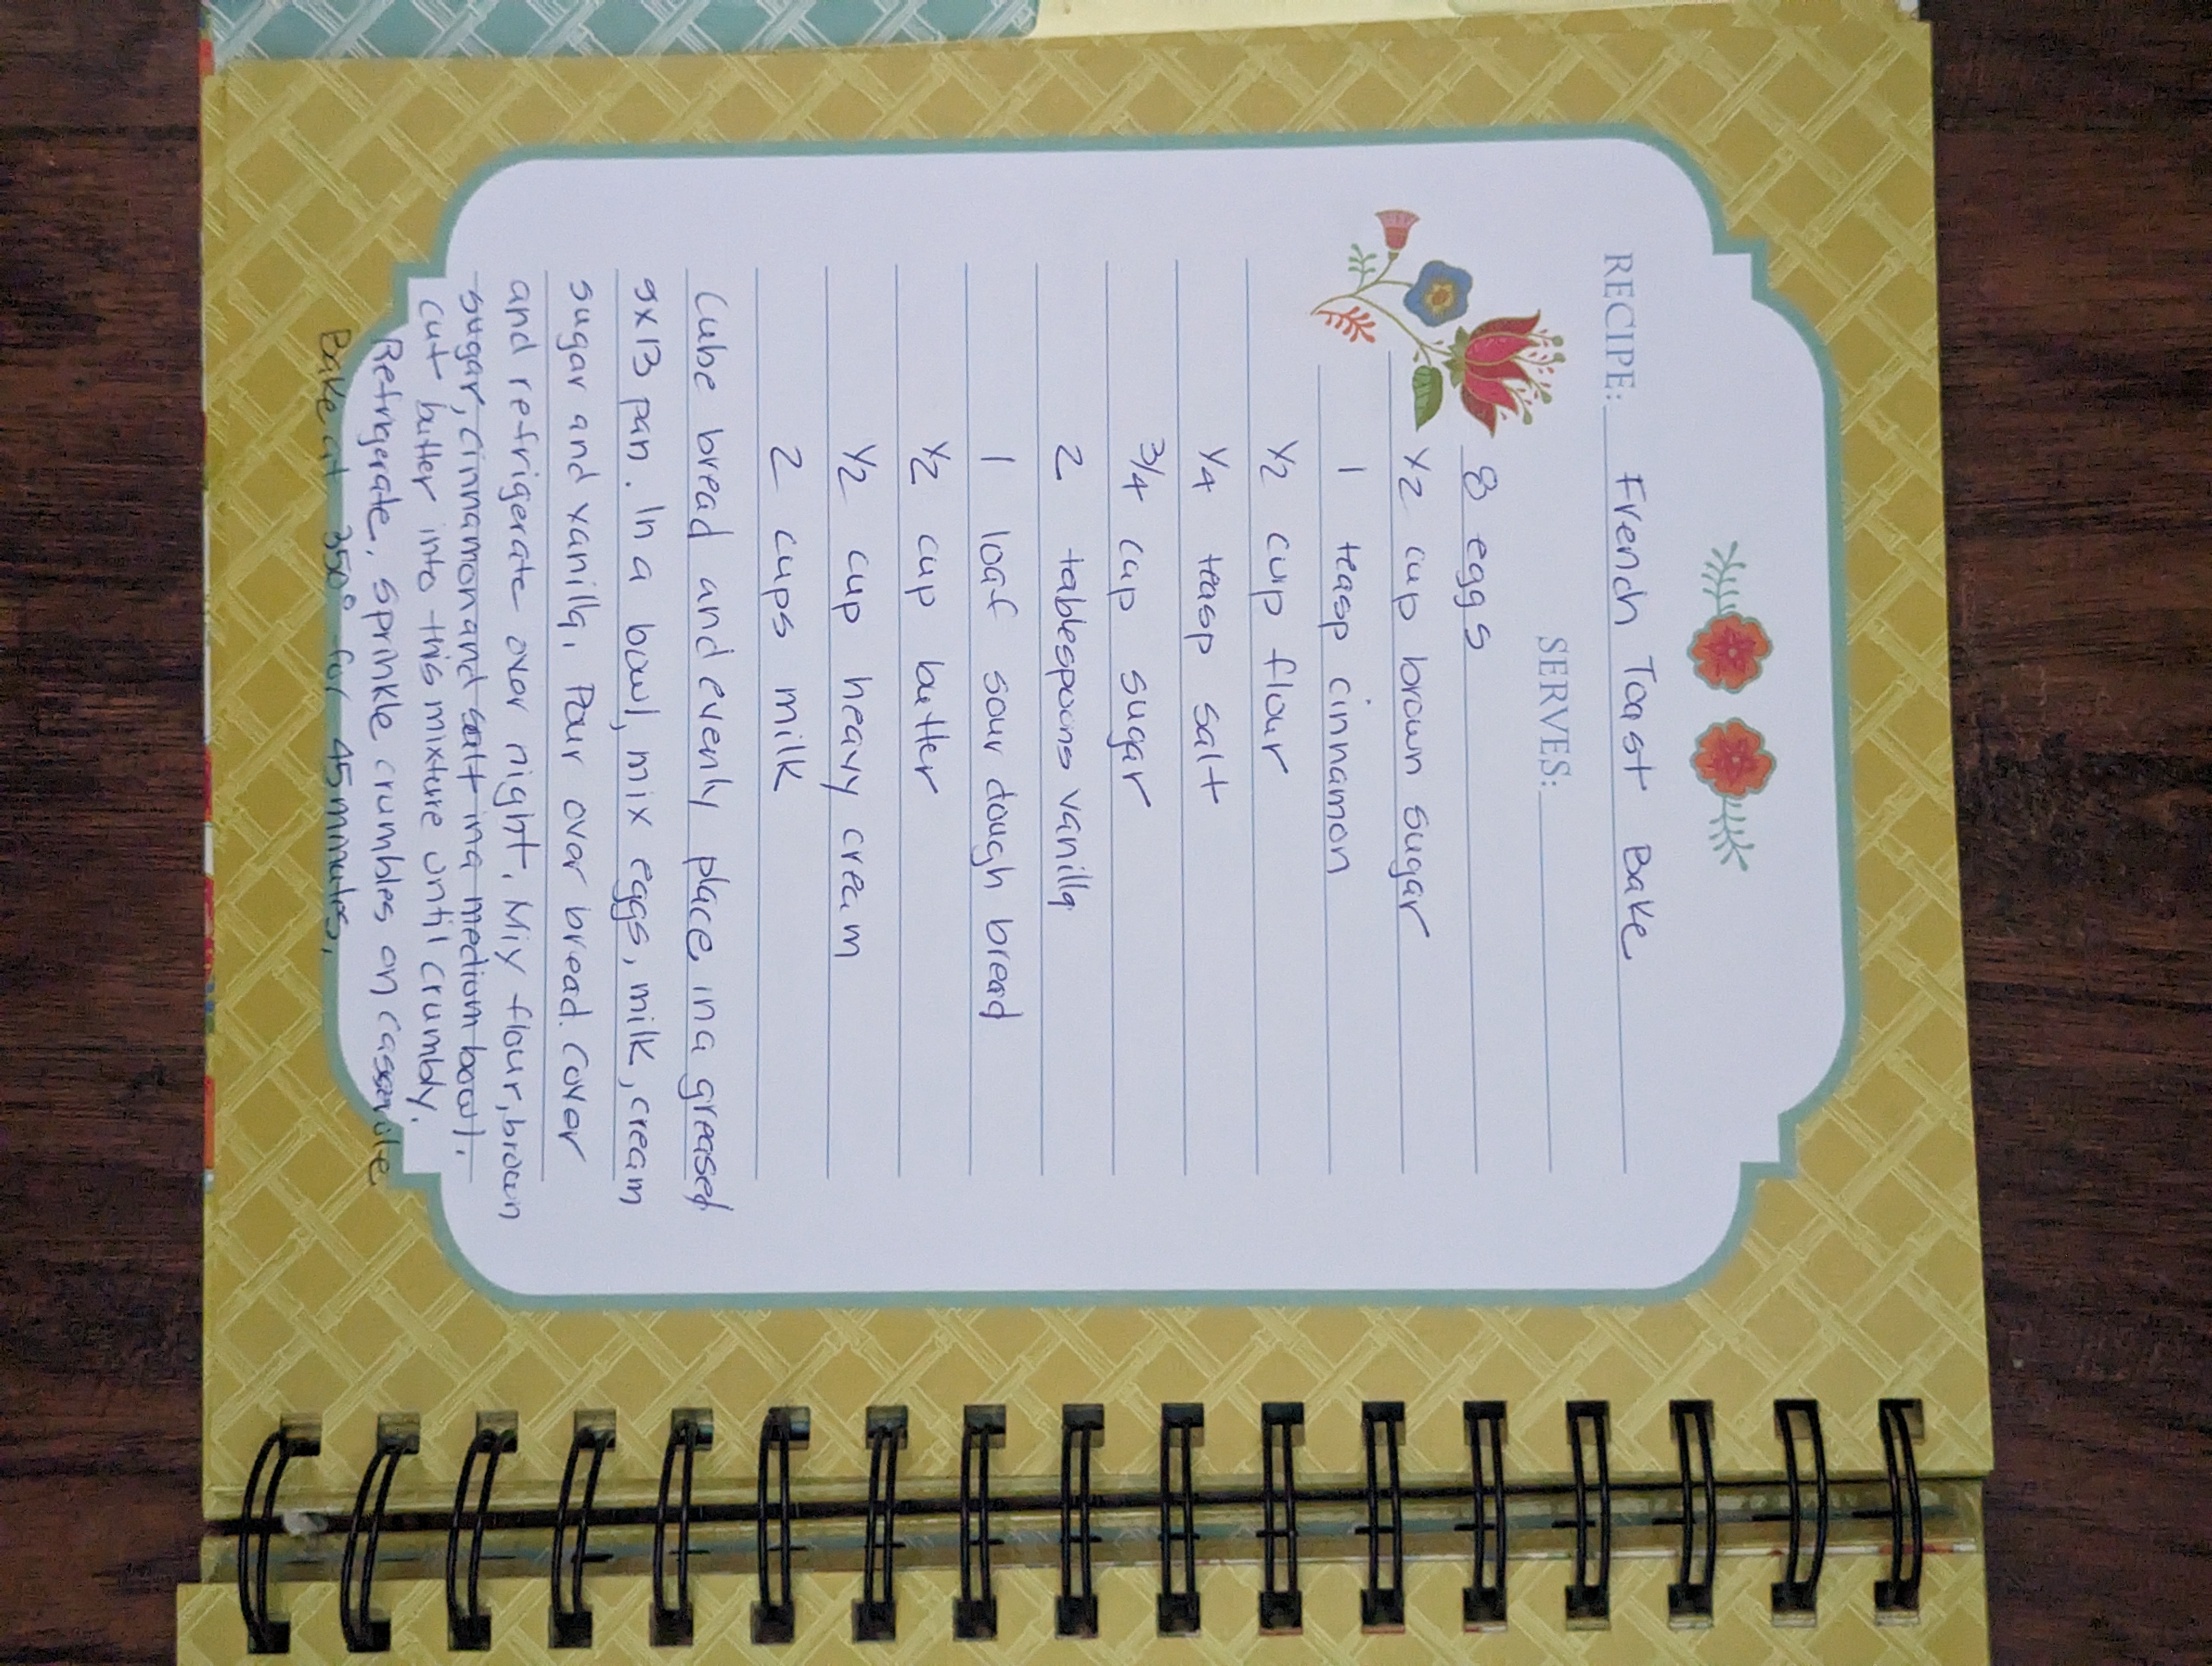 RECIPE: French Toast Bake
SERVES:
8 eggs
1/2 cup brown sugar
1 teasp cinnamon
1/2 cup flour
1/4 teasp salt
3/4 cup sugar
2 tablespoons vanilla
1 loaf sour dough bread
1/2 cup butter
1/2 cup heavy cream
2 cups milk
Cube bread and evenly place in a greased
9x13 pan. In a bowl, mix eggs, milk, cream
sugar and vanilla. Pour over bread. Cover
and refrigerate over night. Mix flour, brown
sugar, cinnamon and salt in a medium bowl.
Cut butter into this mixture until crumbly.
Refrigerate, sprinkle crumbles on casserole
Bake at 350° for 45 minutes.